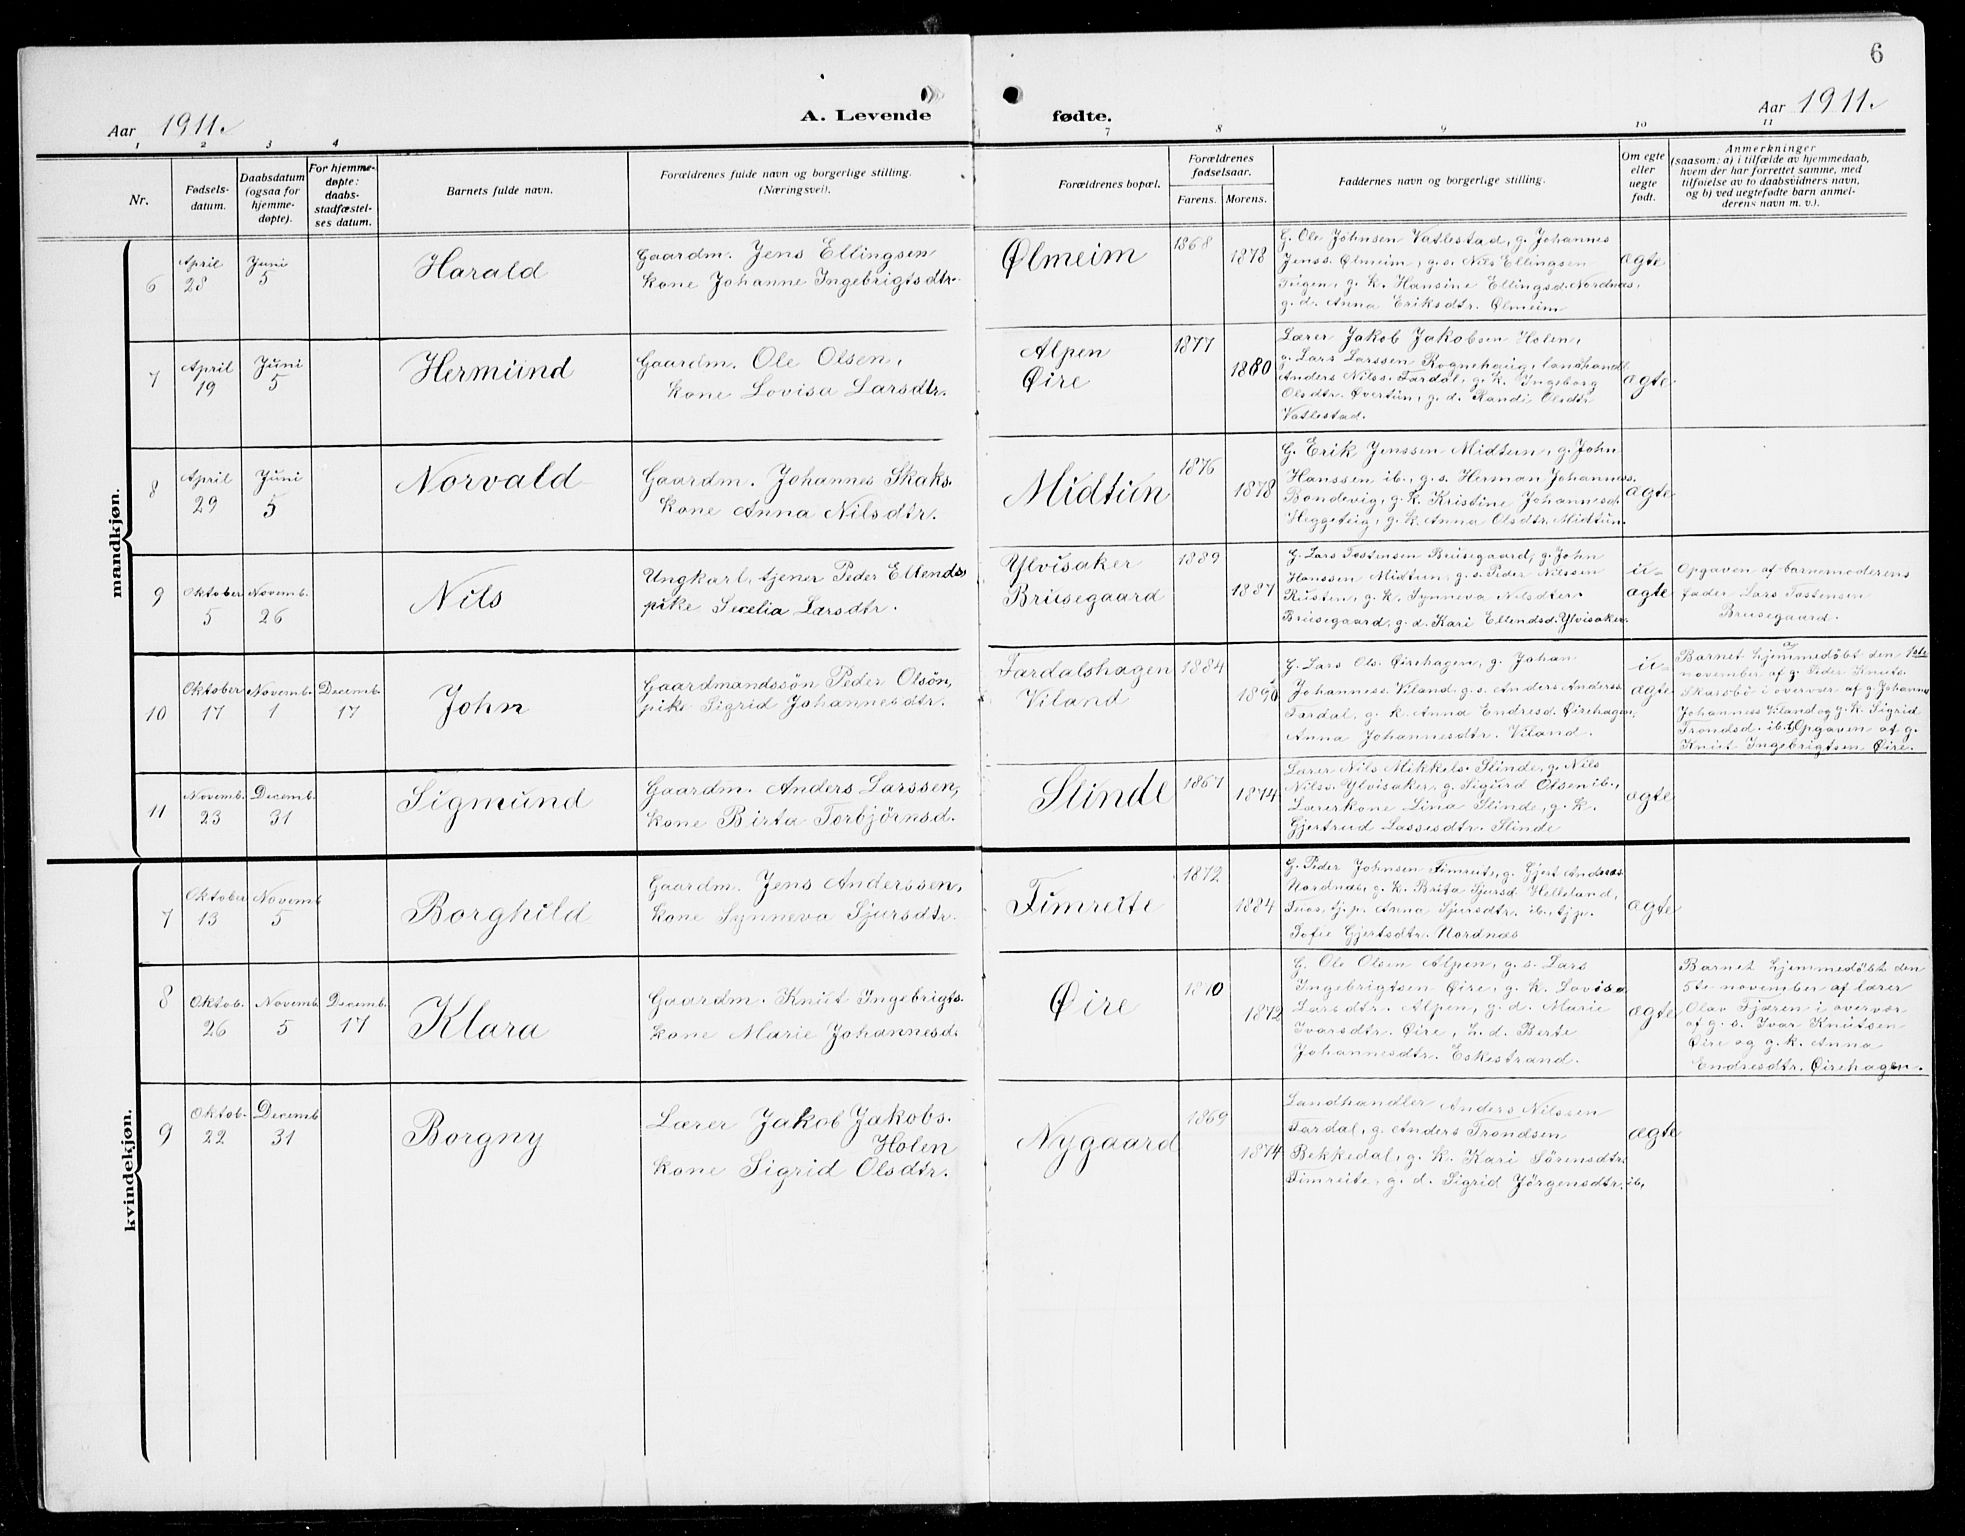 6
Aar 1911.
A. Levende fødte.
Aar 1911.
1 2 3 4 7 8 9 10 11
Nr.
Fødsels-
datum.
Daabsdatum
(ogsaa for
hjemme-
døpte).
For hjemme-
døpte:
daabs-
stadfæstel-
ses datum.
Barnets fulde navn.
Forældrenes fulde navn og borgerlige stilling.
(Næringsvei).
Forældrenes bopæl.
Forældrenes
fødselsaar.
Farens. Morens.
Faddernes navn og borgerlige stilling.
Om egte
eller
uegte
født.
Anmerkninger
(saasom: a) i tilfælde av hjemmedaab,
hvem der har forrettet samme, med
tilføielse av to daabsvidners navn,
og b) ved uegtefødte barn anmel-
derens navn m. v.).
mandkjøn.
6
April
28
Juni
5
Harald
Gaardm. Jens Ellingsen
kone Johanne Ingebrigtsdtr.
Ølmeim
1868
1878
G. Ole Johnsen Vatlestad, g. Johannes
Jenss. Ølmeim, g.s. Nils Ellingsen
Tugen, g. k. Hansine Ellingsd. Nordnæs,
g. d. Anna Eriksdtr. Ølmeim
ægte
7
April
19
Juni
5
Hermund
Gaardm. Ole Olsen,
kone Lovisa Larsdtr.
Alpen
Øire
1877
1880
Lærer Jakob Jakobsen Holen,
g. Lars Larssen Rognehaug, landhandl.
Anders Nilss. Fardal, g. k. Ingeborg
Olsdtr. Øvertun, g. d. Randi Olsdtr
Vatlestad.
ægte
8
April
29
Juni
5
Norvald
Gaardm. Johannes Skaks.
kone Anna Nilsdtr.
Midtun
1876
1878
G. Erik Jenssen Midtun, g. John
Hanssen ib., g.s. Herman Johanness.
Bondevig, g. k. Kristine Johannesd.
Heggeteig, g. k. Anna Olsdtr. Midtun.
ægte
9
Oktober
5
Novemb.
26
Nils
Ungkarl, tjener Peder Ellends,
pike Secelia Larsdtr.
Ylvisaker
Brusegaard
1889
1887
G. Lars Tostensen Brusegaard, g. John
Hanssen Midtun, g. s. Peder Nilssen
Rusten, g. k. Synneva Nilsdter.
Brusegaard, g. d. Kari Ellendsd. Ylvisaker.
u-
ægte
Opgaven af barnemoderens
fader Lars Tostensen
Brusegaard.
10
Oktober
17
Novemb.
1
Decemb.
17
John
Gaardmandssøn Peder Olsøn,
pike Sigrid Johannesdtr.
Fardalshagen
Viland
1884
1890
G. Lars Ols. Øirehagen, g. Johan
Johanness. Viland, g. s. Anders Anderss.
Fardal, g. k. Anna Endresd. Øirehagen,
Anna Johannesdtr. Viland.
u-
ægte
Barnet hjemmedøbt den 1ste
november af g. Peder Knuts.
Skarsbö i overvær af g. Johannes
Johanness Viland og g. k. Sigrid
Trondsd. ib. Opgaven af g.
Knut Ingebrigtsen Øire.
11
Novemb.
23
Decemb.
31
Sigmund
Gaardm. Anders Larssen,
kone Birta Torbjørnsd.
Slinde
1867
1874
Lærer Nils Mikkels. Slinde, g. Nils
Nilss. Ylvisaker, g. Sigurd Olsen ib.,
Lærerkone Lina Slinde, g. k.
Gjertrud Lassesdtr. Slinde
ægte
kvindekjøn.
7
Oktober
13
Novemb
5
Borghild
Gaardm. Jens Anderssen,
kone Synneva Sjursdtr.
Timreite
1872
1884
G. Peder Johnsen Timreite, g. Gjert Andreas
Nordnæs, g. k. Brita Sjursd Helleland,
tj.p. Anna Sjursdtr. ib., tj.p.
Sofie Gjertsdtr. Nordnæs
ægte
8
Oktob.
26
Novemb.
5
Decemb.
17
Klara
Gaardm. Knut Ingebrigts.
kone Marie Johannesd.
Øire
1870
1872
G. Ole Olsen Alpen, g. s. Lars
Ingebrigtsen Øire, g. k. Lovisa
Larsdtr. Alpen, g. d. Marie
Ivarsdtr. Øire, h. d. Berte
Johannesdtr. Eskestrand.
ægte
Barnet hjemmedøbt den
5te november af lærer
Olav Fjæren i overvær
af g. s. Ivar Knutsen
Øire og g. k. Anna
Endresdtr. Øirehagen.
9
Oktob.
22
Decemb
31
Borgny
Lærer Jakob Jakobs.
Holen
kone Sigrid Olsdtr.
Nygaard
1869
1874
Landhandler Anders Nilssen
Fardal, g. Anders Trondsen
Bekkedal, g. k. Kari Sørensdtr.
Timreite, g. d. Sigrid Jørgensdtr. ib.
ægte